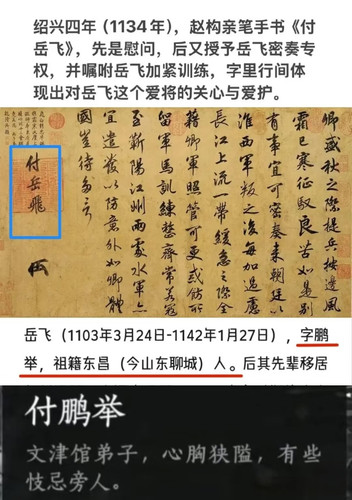 绍兴四年 (1134年)，赵构亲笔手书《付
岳飞》，先是慰问，后又授予岳飞密奏专
权，并嘱咐岳飞加紧训练，字里行间体
现出对岳飞这个爱将的关心与爱护。
卿盛秋之際提兵按邊風
霜已寒征馭良苦如是別
有事宜可密奏來朝廷以
淮西軍叛之後每加過慮
長江上流一帶緩急之際全
籍卿軍照管可更戒飭所
留軍馬訓練整齊常若寇
至蘄陽江州兩處水軍亦
宜遣發以防意外如卿體
國豈待多言
付岳飛
岳飞 (1103年3月24日-1142年1月27日)，字鹏
举，祖籍东昌 (今山东聊城) 人。后其先辈移居
付鹏举
文津馆弟子，心胸狭隘，有些
忮忌旁人。